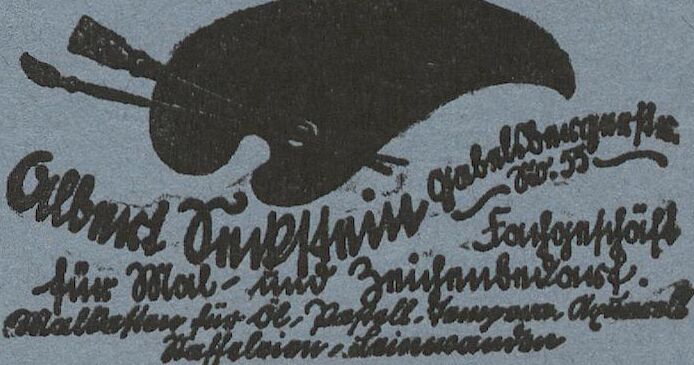 Gabelsbergerstr.
Nr. 55
Albert
Fachgeschäft
für Mal- und Zeichenbedarf.
Malkasten für Öl- Pastell- Tempera Aquarell
Staffeleien - Leinwanden